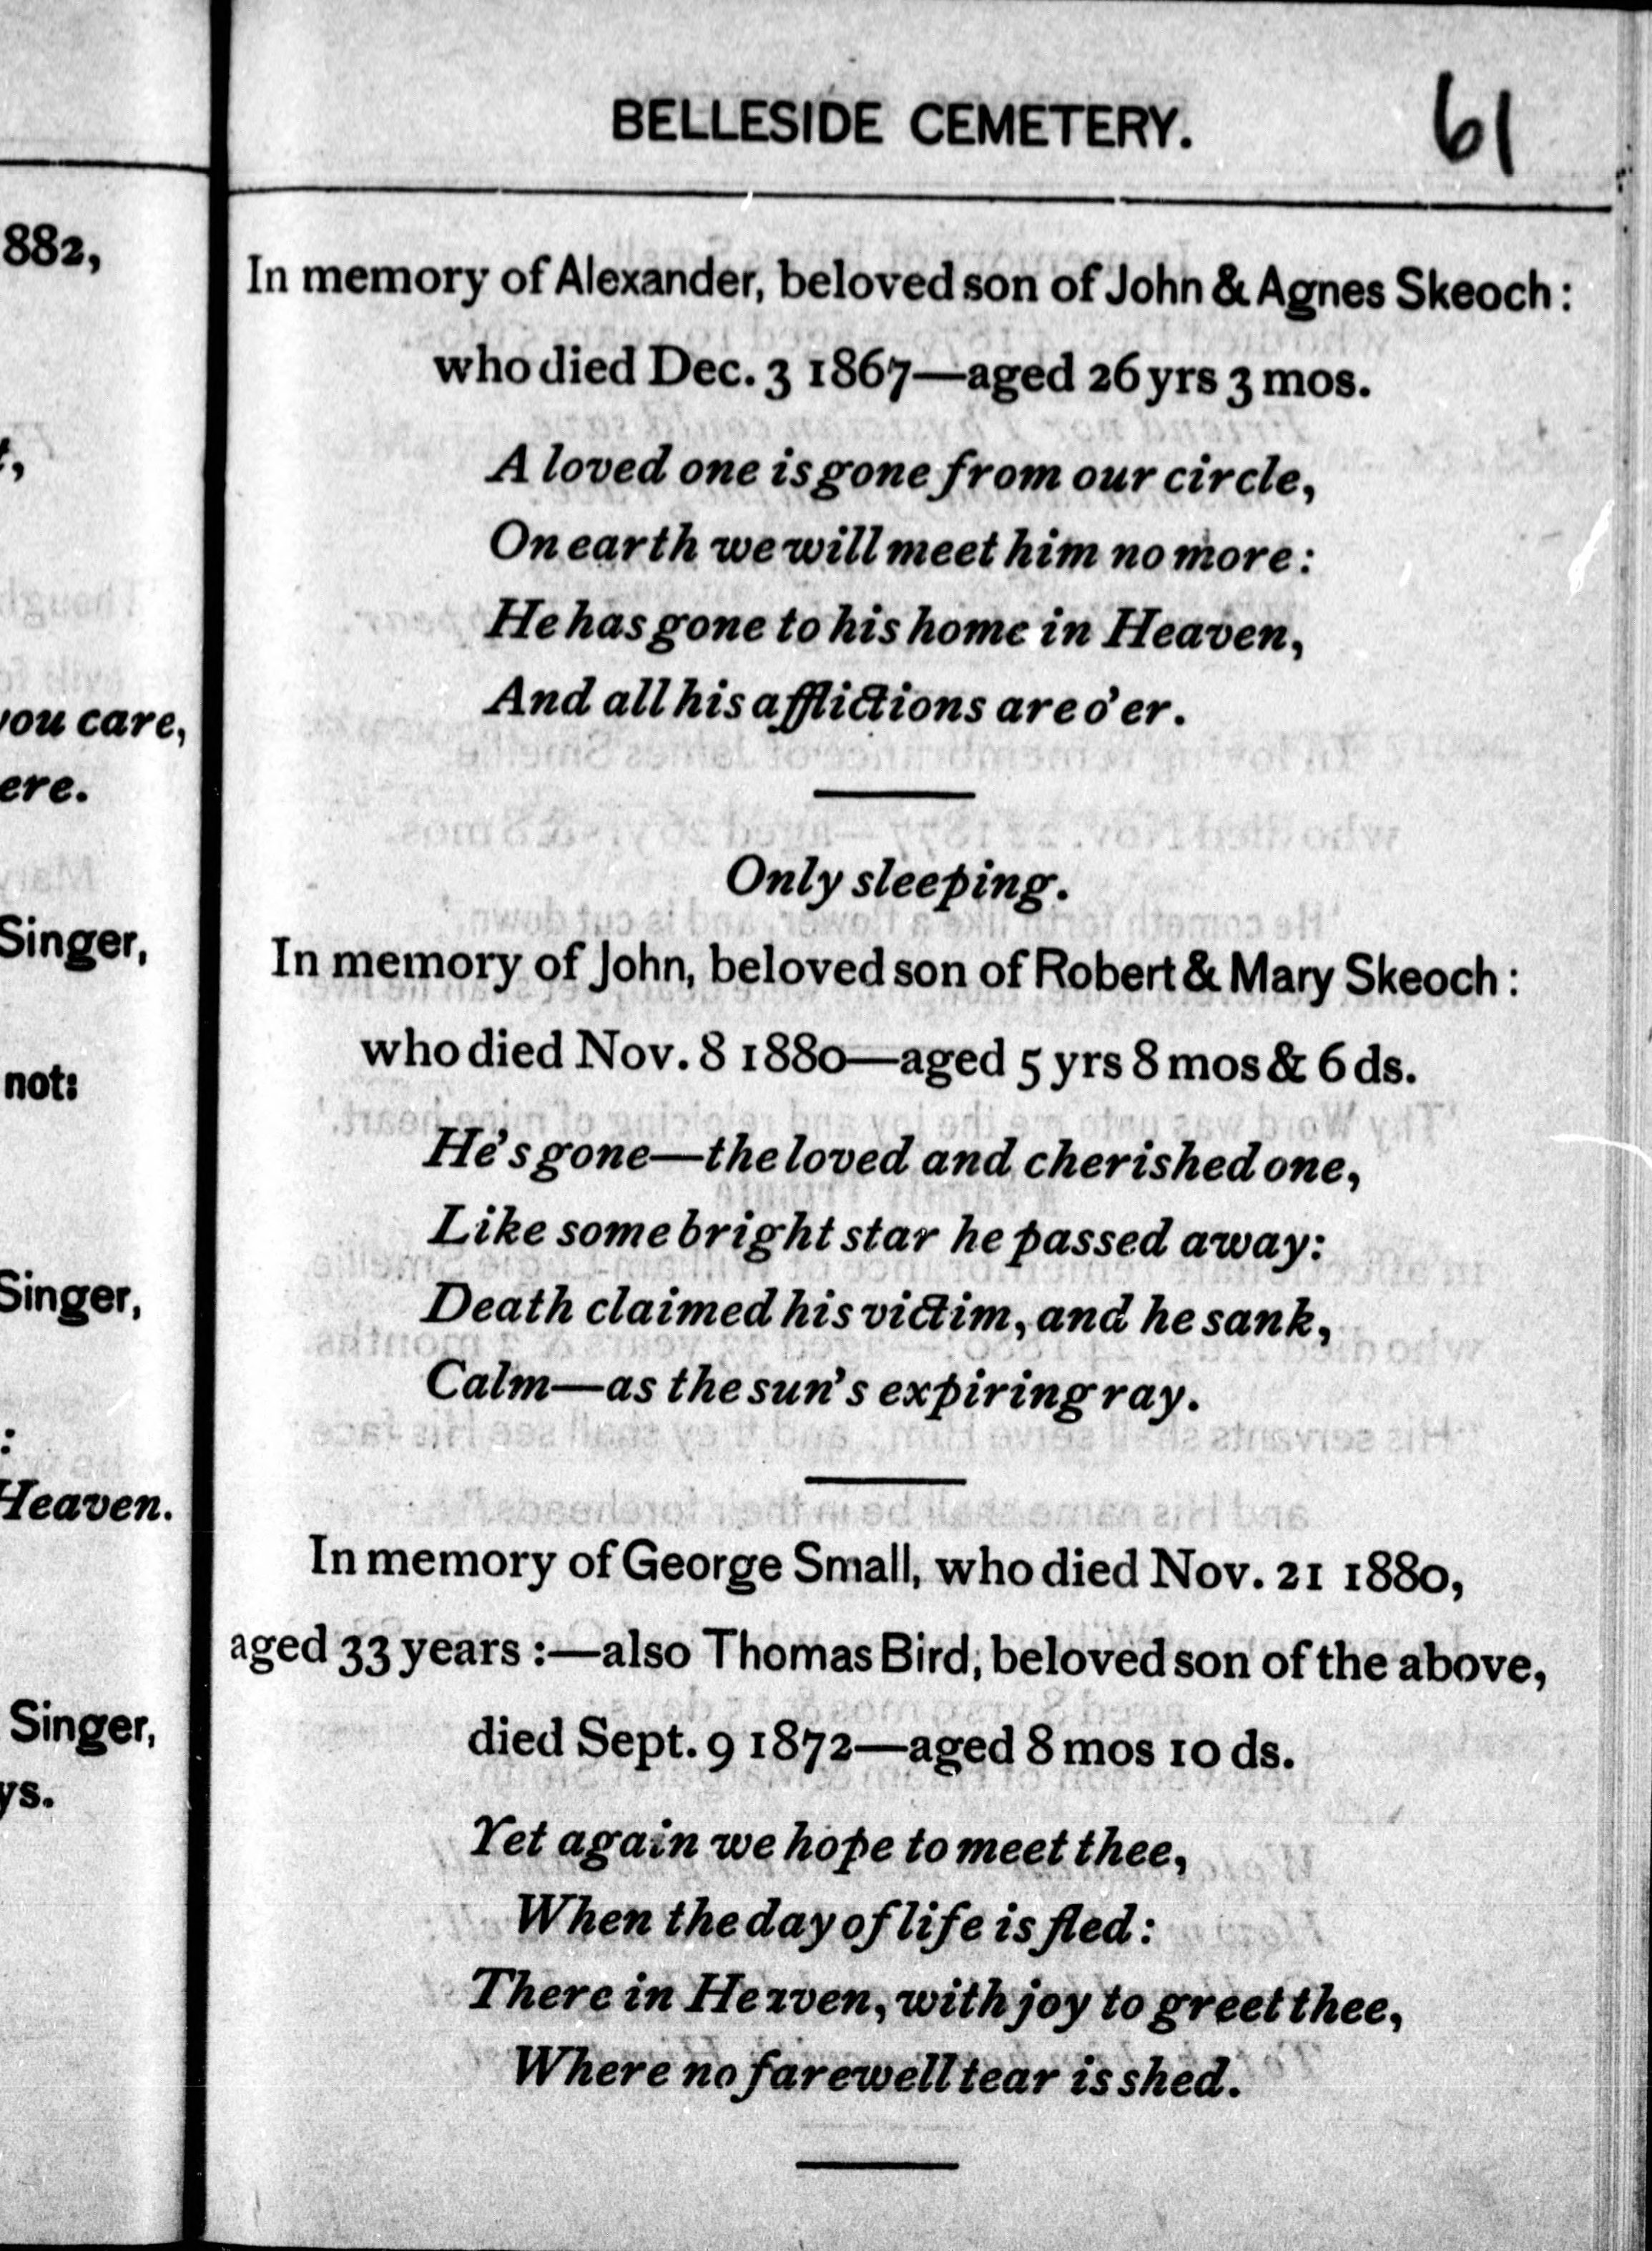 882,
t,
you care,
ere.
Singer,
not:
Singer,
:
Heaven.
Singer,
ys.
BELLESIDE CEMETERY.
61
In memory of Alexander, beloved son of John & Agnes Skeoch :
who died Dec. 3 1867—aged 26 yrs 3 mos.
A loved one is gone from our circle,
On earth we will meet him no more :
He has gone to his home in Heaven,
And all his afflictions are o'er.
Only sleeping.
In memory of John, beloved son of Robert & Mary Skeoch :
who died Nov. 8 1880—aged 5 yrs 8 mos & 6 ds.
He's gone—the loved and cherished one,
Like some bright star he passed away:
Death claimed his victim, and he sank,
Calm—as the sun's expiring ray.
In memory of George Small, who died Nov. 21 1880,
aged 33 years :—also Thomas Bird, beloved son of the above,
died Sept. 9 1872—aged 8 mos 10 ds.
Yet again we hope to meet thee,
When the day of life is fled :
There in Heaven, with joy to greet thee,
Where no farewell tear is shed.